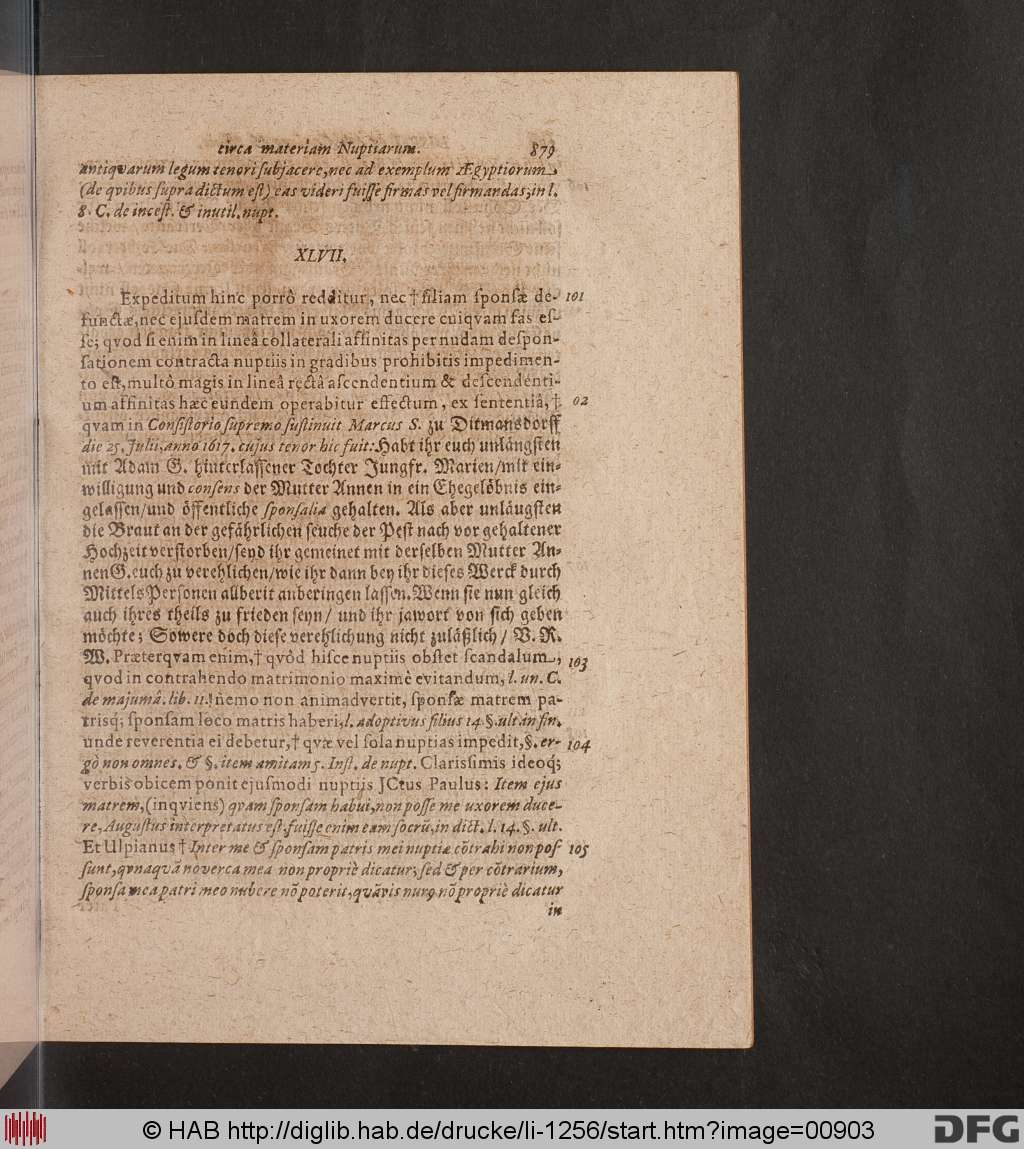 circa materiam Nuptiarum. 879
antiqvarum legum tenori subjacere, nec ad exemplum Ægyptiorum,
(de qvibus supra dictum est) eas videri fuisse firmas vel firmandas; in l.
8. C. de incest. & inutil. nupt.
XLVII.
Expeditum hinc porrò redditur, nec † filiam sponsæ de- 101
functæ, nec ejusdem matrem in uxorem ducere cuiqvam fas es-
se; qvod si enim in lineâ collaterali affinitas per nudam despon-
sationem contracta nuptiis in gradibus prohibitis impedimen-
to est, multô magis in lineâ rectâ ascendentium & descendenti-
um affinitas hæc eundem operabitur effectum, ex sententiâ, †. 02
qvam in Consistorio supremo sustinuit Marcus S. zu Ditmansdorff
die 25. Julii, anno 1617. cujus tenor hic fuit: Habt ihr euch unlängsten
mit Adam G. hinterlassener Tochter Jungfr. Marien/ mit ein-
willigung und consens der Mutter Annen in ein Ehegelöbnis ein-
gelassen/ und öffentliche sponsalia gehalten. Als aber unläugsten
die Braut an der gefährlichen seuche der Pest nach vor gehaltener
Hochzeit verstorben/ seyd ihr gemeinet mit derselben Mutter An-
nen G. euch zu verehlichen/ wie ihr dann bey ihr dieses Werck durch
MittelsPersonen allberit anberingen lassen. Wenn sie nun gleich
auch ihres theils zu frieden seyn/ und ihr jawort von sich geben
möchte; Sowere doch diese verehlichung nicht zuläßlich/ V. R.
W. Præterqvam enim, † qvôd hisce nuptiis obstet scandalum, 103
qvod in contrahendo matrimonio maximè evitandum, l. un. C.
de majumâ. lib. 11. nemo non animadvertit, sponsæ matrem pa-
trisq; sponsam loco matris haberi, l. adoptivus filius 14. §. ult. in fin.
unde reverentia ei debetur, † qvæ vel sola nuptias impedit, §. er- 104
gò non omnes. & §. item amitam 5. Inst. de nupt. Clarissimis ideoq;
verbis obicem ponit ejusmodi nuptiis JCtus Paulus: Item ejus
matrem, (inqviens) qvam sponsam habui, non posse me uxorem duce-
re, Augustus interpretatus est, fuisse enim eam socrũ, in dict. l. 14. §. ult.
Et Ulpianus † Inter me & sponsam patris mei nuptiæ cõtrahi non pos 105
sunt, qvnaqvã noverca mea non propriè dicatur; sed & per cõtrarium,
sponsa mea patri meo nubere nõ poterit, quãvis nurꝰ nõ propriè dicatur
in
© HAB http://diglib.hab.de/drucke/li-1256/start.htm?image=00903
DFG